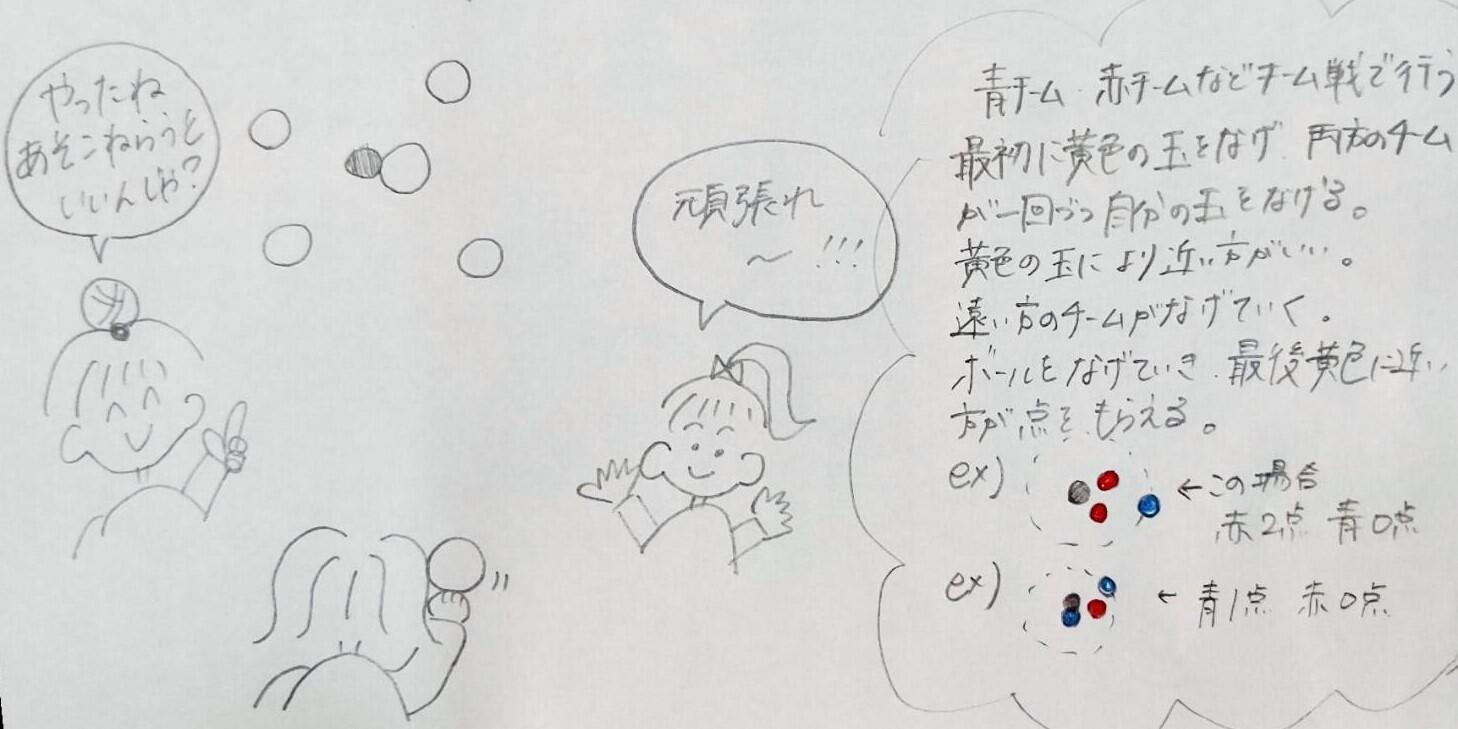 やったね
あそこねらうと
いいんじゃ?
頑張れ
〜!!!
青チーム、赤チームなどチーム戦で行う
最初に黄色の玉をなげ、両方のチーム
が一回づつ自分の玉をなげる。
黄色の玉により近い方がいい。
遠い方のチームがなげていく。
ボールをなげていき、最後黄色に近い
方が点をもらえる。
ex) ←この場合
赤2点 青0点
ex) ← 青1点 赤0点